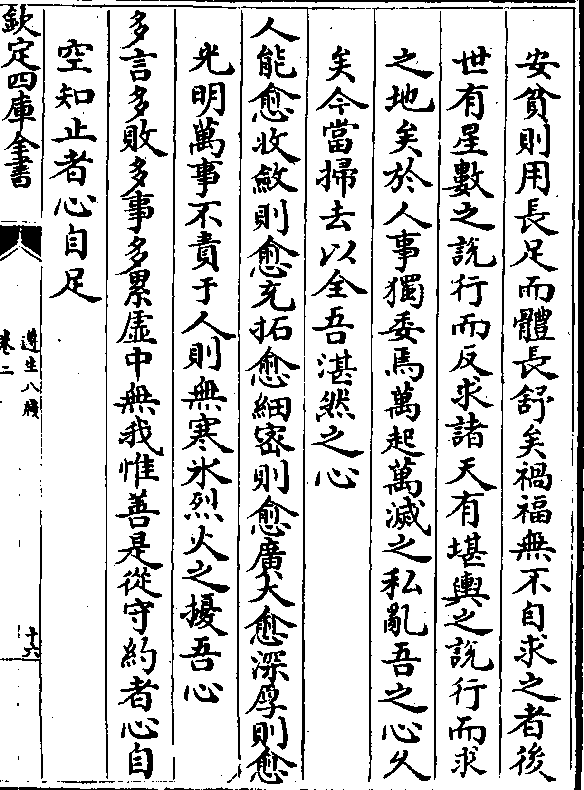 安貧則用長足而體長舒矣禍福無不自求之者後
世有星數之說行而反求諸天有堪輿之說行而求
之地矣於人事獨委焉萬起萬滅之私亂吾之心久
矣今當掃去以全吾湛然之心
人能愈收斂則愈充拓愈細密則愈廣大愈深厚則愈
光明萬事不責于人則無寒氷烈火之擾吾心
多言多敗多事多累虛中無我惟善是從守約者心自
空知止者心自足
欽定四庫全書
遵生八牋
卷二
十六